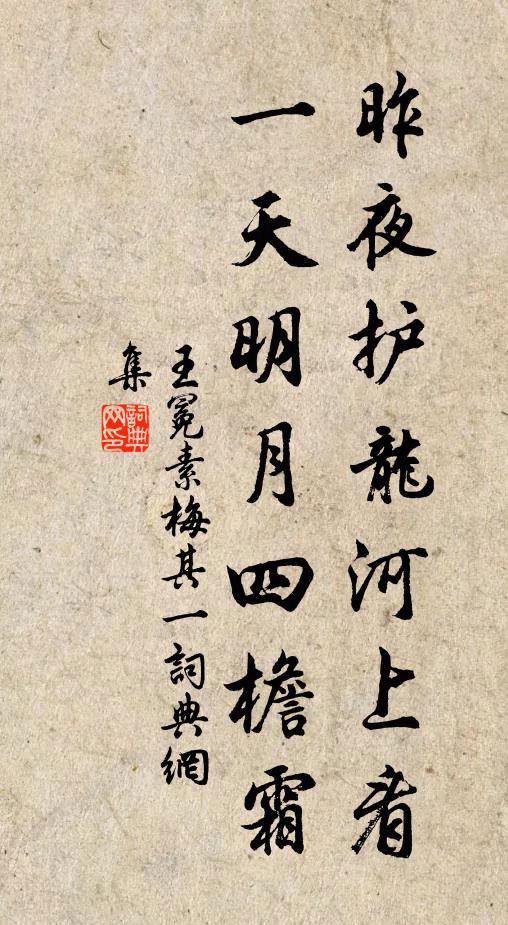 昨夜护龍河上看
一天明月四檐霜
王冕素梅其一詞典網
集
詞典
网印